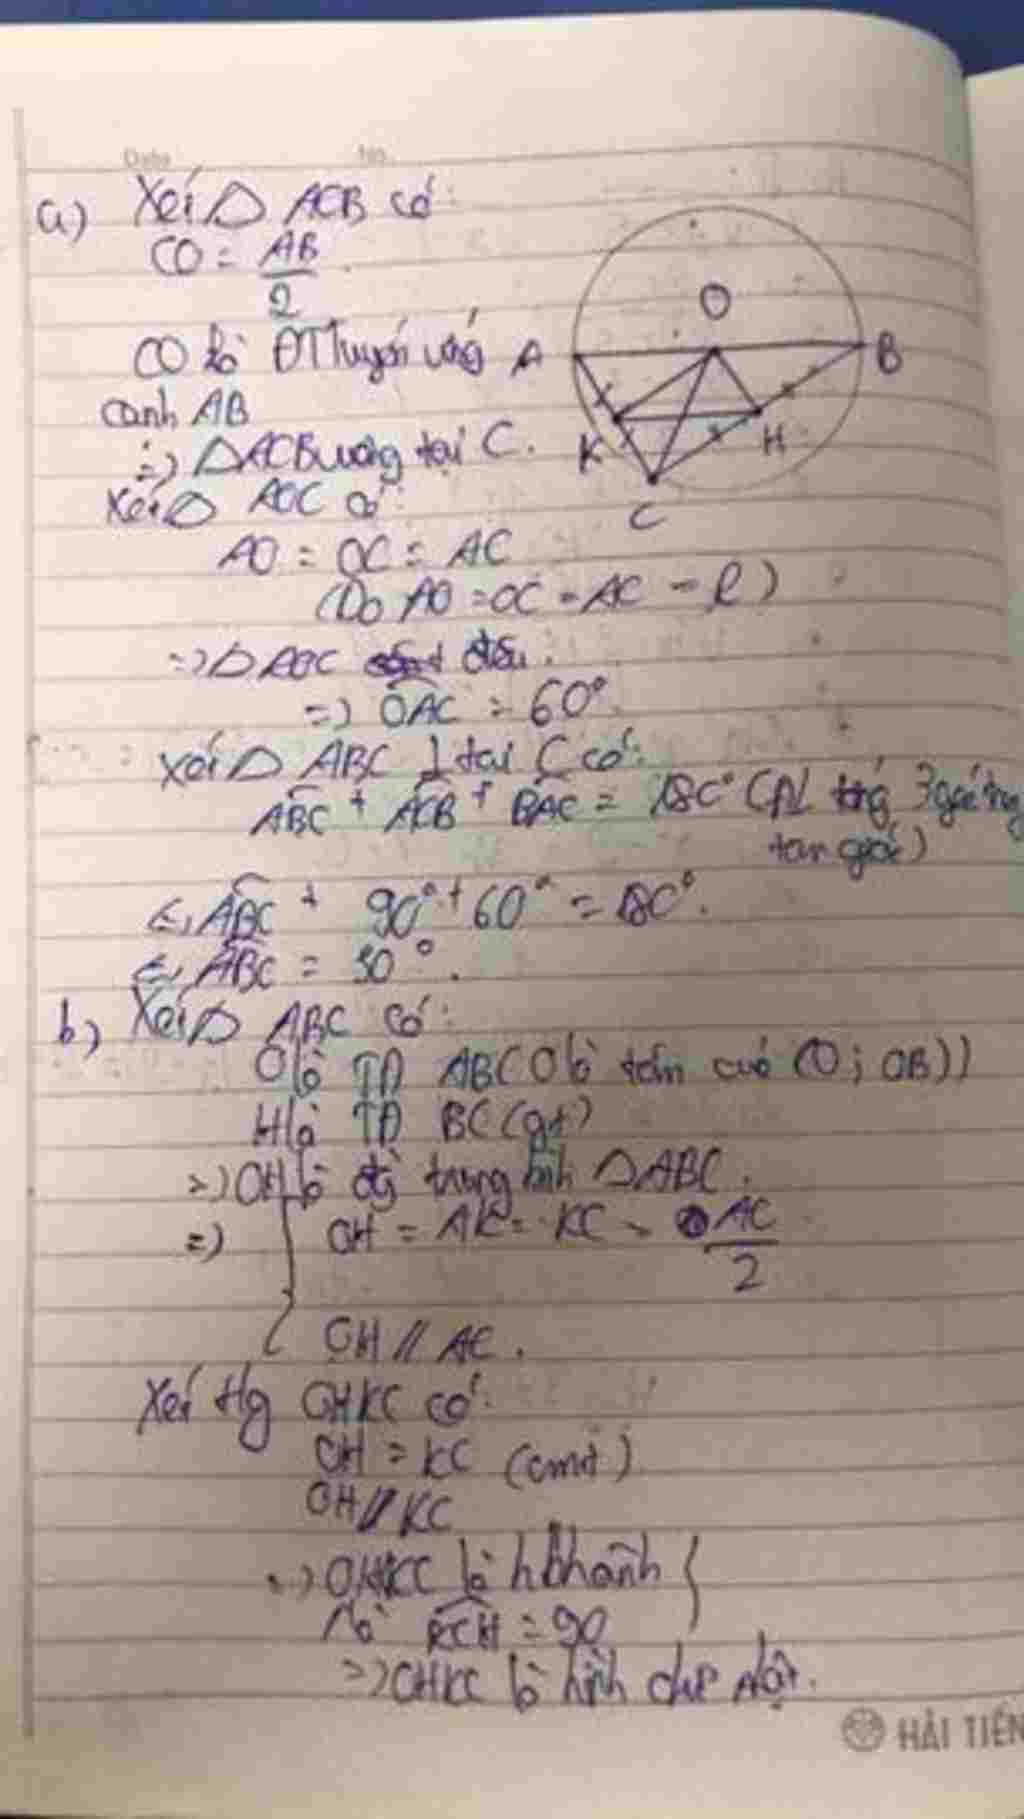 Date No.
a) Xét △ ACB có:
CO = AB/2
CO là ĐTTuyến ứng
cạnh AB
=> △ACB vuông tại C.
Xét △ AOC có:
AO = OC = AC
(Do AO = OC = AC = R)
=> △ AOC đều.
=> OAC = 60°
Xét △ ABC ⊥ tại C có:
ABC + ACB + BAC = 180° (ĐL tổng 3 góc trong
tam giác)
<=> ABC + 90° + 60° = 180°.
<=> ABC = 30°.
b) Xét △ ABC có:
O là TĐ AB (O là tâm của (O; OB))
H là TĐ BC (gt)
=> OH là đg trung bình △ABC.
=> { OH = AK = KC = AC/2
OH // AC.
Xét Hg OHKC có:
OH = KC (cmt)
OH // KC
=> OHKC là hbhành }
Mà KCH = 90
=> OHKC là hình chữ nhật.
O
A
B
K
H
C
HẢI TIẾN